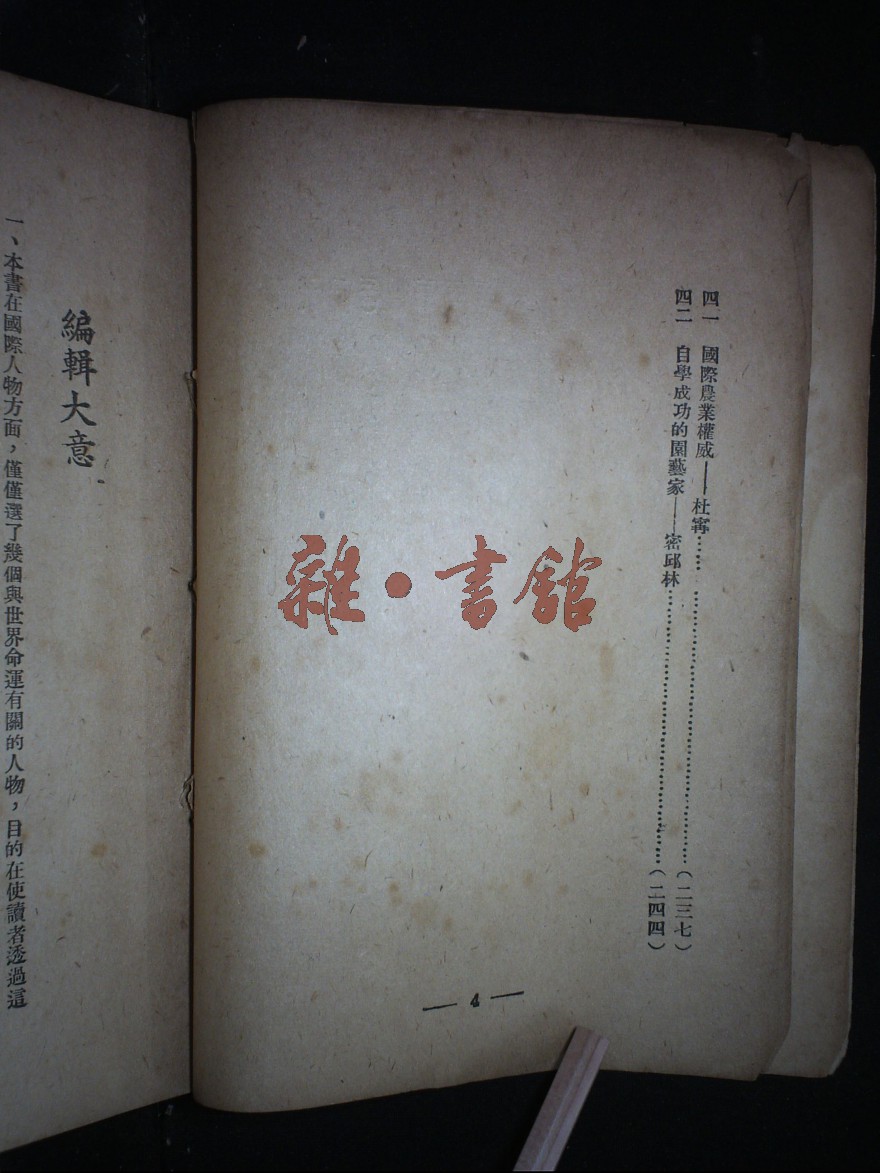 四一　國際農業權威——杜寗…………………………………（二三七）
四二　自學成功的園藝家——密邱林…………………………………（二四四）
— 4 —
編輯大意
一、本書在國際人物方面，僅僅選了幾個與世界命運有關的人物，目的在使讀者透過這
雜·書館